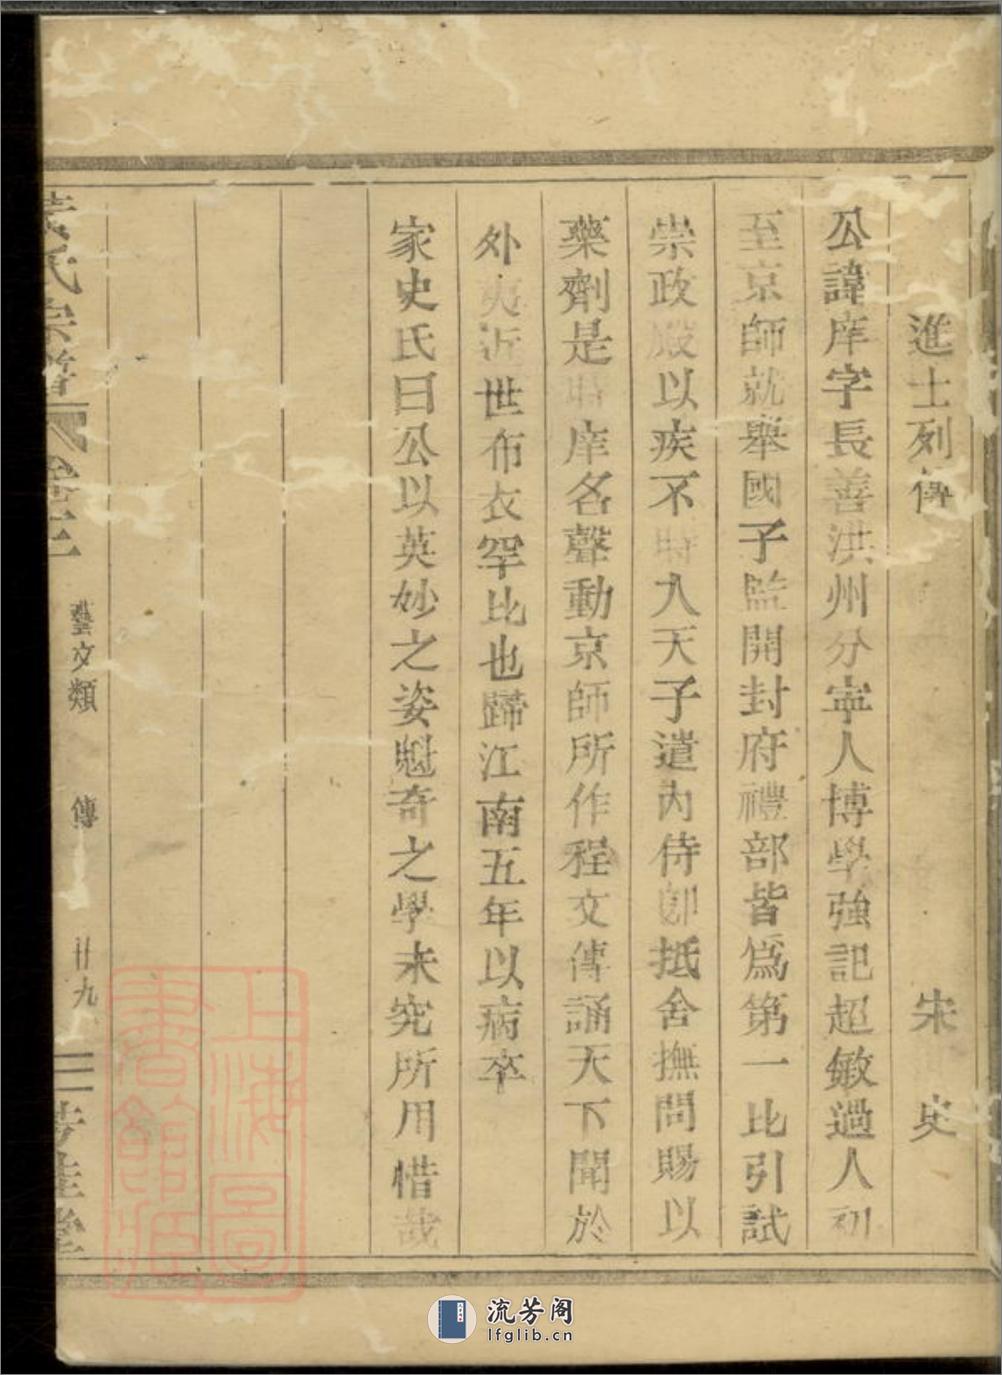 進士列傳 宋史
公諱庠字長善洪州分寧人博學強記超敏過人初
至京師就舉國子監開封府禮部皆爲第一比引試
崇政殿以疾不時入天子遣內侍卽抵舍撫問賜以
藥劑是時庠名聲動京師所作程文傳誦天下聞於
外夷近世布衣罕比也歸江南五年以病卒
家史氏曰公以英妙之姿魁奇之學未究所用惜哉
氏宗譜 卷 藝文類 傳 廿九
上海圖書館藏
流芳阁
lfglib.cn